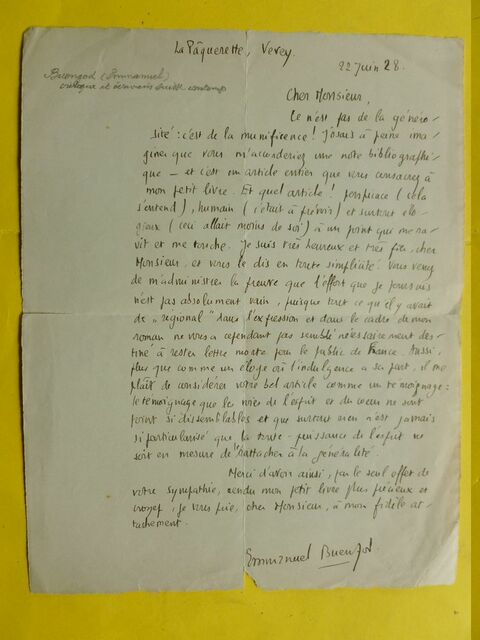 La Pâquerette, Vevey.
22 Juin 28.
Buenzod (Emmanuel)
critique et écrivain suisse contemp
Cher Monsieur,
Ce n'est pas de la géné­ro-
sité : c'est de la munificence ! J'osais à peine ima-
giner que vous m'accorderiez une note bibliographi-
que – et c'est un article entier que vous consacrez à
mon petit livre. Et quel article ! perspicace (cela
s'entend), humain (c'était à prévoir) et surtout élo-
gieux (ceci allait moins de soi) à un point qui me ra-
vit et me touche. Je suis très heureux et très fier, cher
Monsieur, et vous le dis en toute simplicité. Vous venez
de m'administrer la preuve que l'effort que je poursuis
n'est pas absolument vain, puisque tout ce qu'il y avait
de "régional" dans l'expression et dans le cadre de mon
roman ne vous a cependant pas semblé nécessairement des-
tiné à rester lettre morte pour le public de France. Aussi,
plus que comme un éloge où l'indulgence a sa part, il me
plaît de considérer votre bel article comme un témoignage :
le témoignage que les voies de l'esprit et du cœur ne sont
point si dissemblables et que surtout rien n'est jamais
si particularisé que la toute-puissance de l'esprit ne
soit en mesure de l'rattacher à la généralité.
Merci d'avoir ainsi, par le seul effet de
votre sympathie, rendu mon petit livre plus précieux et
croyez, je vous prie, cher Monsieur, à mon fidèle at-
tachement.
Emmanuel Buenzod.